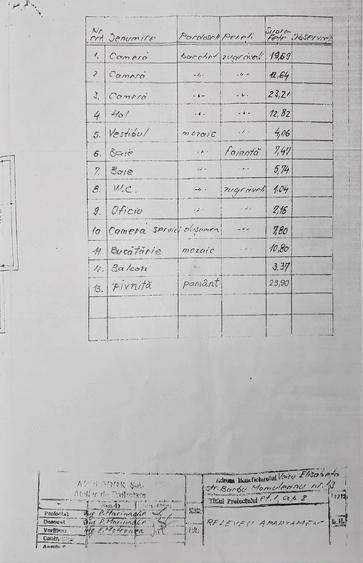 Nr. crt. Denumire Pardoseli Pereți Supra-față Observații
1. Cameră parchet zugrăveli 19,69
2. Cameră -"- -"- 12,64
3. Cameră -"- -"- 23,21
4. Hol -"- -"- 12,82
5. Vestibul mozaic -"- 4,06
6. Baie -"- faianță 7,47
7. Baie -"- -"- 5,74
8. W.C. -"- zugrăveli 1,04
9. Oficiu -"- -"- 2,16
10 Camera servici dușumea -"- 7,80
11. Bucătărie mozaic -"- 10,80
12. Balcon 3,37
13. Pivniță pamânt 23,90
Adresa Beneficiarului Voicu Elisabeta
str. Barbu Mumuleanu nr. 13
Titlul Proiectului et. 1, ap. 2
Proiectat
Desenat
Verificat
RELEVEU APARTAMENT